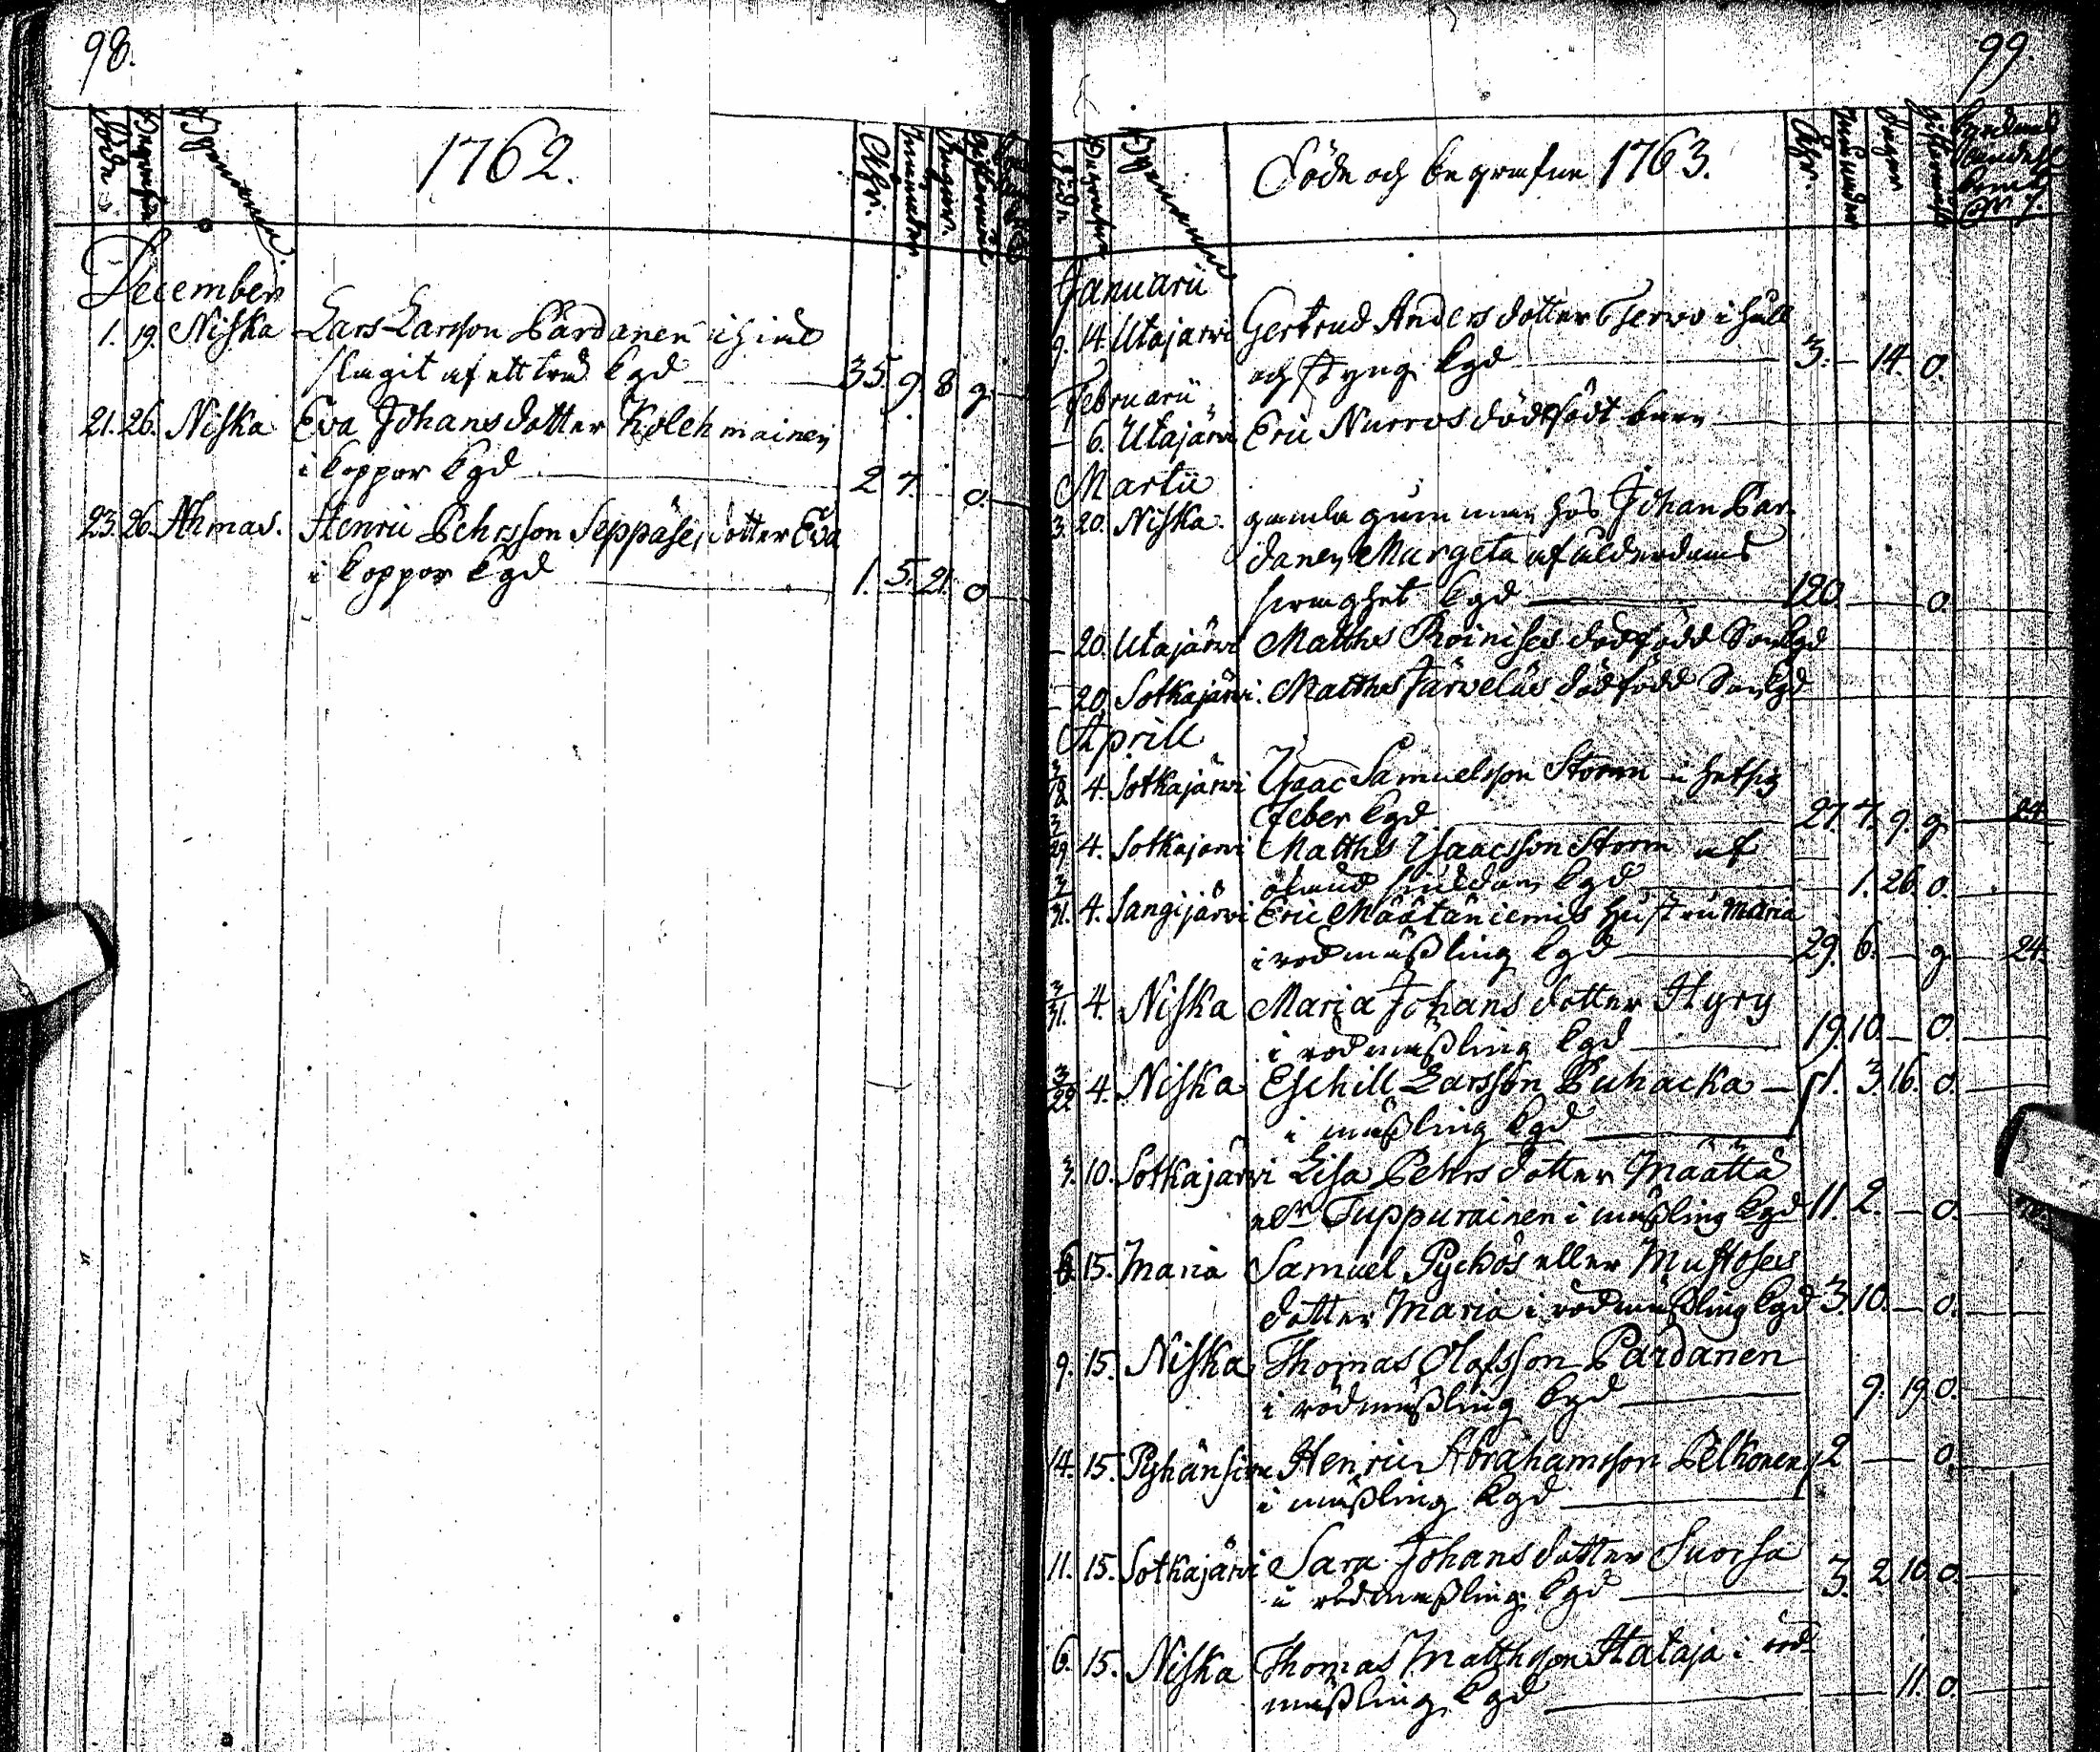 98.
Döde
Begrafne
Byarne
1762.
Åhr.
Månader
Dagar
December
1. 19. Niska Lars Larsson Pardanen ihiel
slagit af ett träd bgd 35. 9. 8 g.
21. 26. Niska Eva Johansdotter Kolehmainen
i koppor bgd 2 7. o.
23. 26. Ahmas. Henric Pehrsson Seppäses dotter Eva
i koppor bgd 1. 5. 21. o
99.
Begrafne
Döde och begrafne 1763.
Åhr.
Månader
Dagar
Januarii
9. 14. Utajärvi Gertrud Anders dotter Tervo i håll
och styng bgd 3. — 14. o.
Februarii
— 6. Utajärvi Eric Nurros dödfödt barn
Martii
3. 20. Niska. gamla gumman hos Johan Par-
danen Margeta af ålderdoms
svaghet bgd 120 o.
— 20. Utajärvi Matths Roinises dödfödd Son bgd
— 20. Sotkajärvi. Matths Järveläs dödfödd Son bgd
Aprill
3/18 4. Sotkajärvi Isaac Samuelsson Storm i hetsig
feber bgd. 27. 7. 9. g. 24
3/29 4. Sotkajärvi Matths Isaacsson Storm af
okänd siukdom bgd — 1. 26. o.
3/31. 4. Sangijärvi Eric Määtäniemis hustru Maria
i rödmäßling bgd 29. 6. — g. 24.
3/31. 4. Niska Maria Johans dotter Hyry
i rödmäßling bgd 19. 10. — o.
3/22 4. Niska Eschill Larsson Puhacka — 1. 3. 16. o.
i mäßling bgd
3. 10. Sotkajärvi Lisa Pehrs dotter Määttä
elr Tuppurainen i mäßling bgd 11. 2. — o.
6. 15. Mana Samuel Pyckös eller Mustoses
dotter Maria i rödmäßling bgd 3. 10. — o.
9. 15. Niska Thomas Olofsson Pardanen
i rödmäßling bgd 9. 19. o.
14. 15. Pyhänsivu Henric Abrahamsson Pelkonen 2 — o.
i mäßling bgd
11. 15. Sotkajärvi Sara Johans dotter Suorsa
i rödmäßling bgd 3. 2. 10. o.
6. 15. Niska Thomas Matthsson Hataja i röd-
mäßling bgd — 11. o.